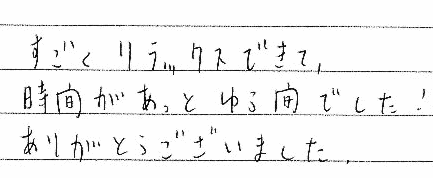 すごくリラックスできて、
時間があっとゆう間でした!
ありがとうございました。